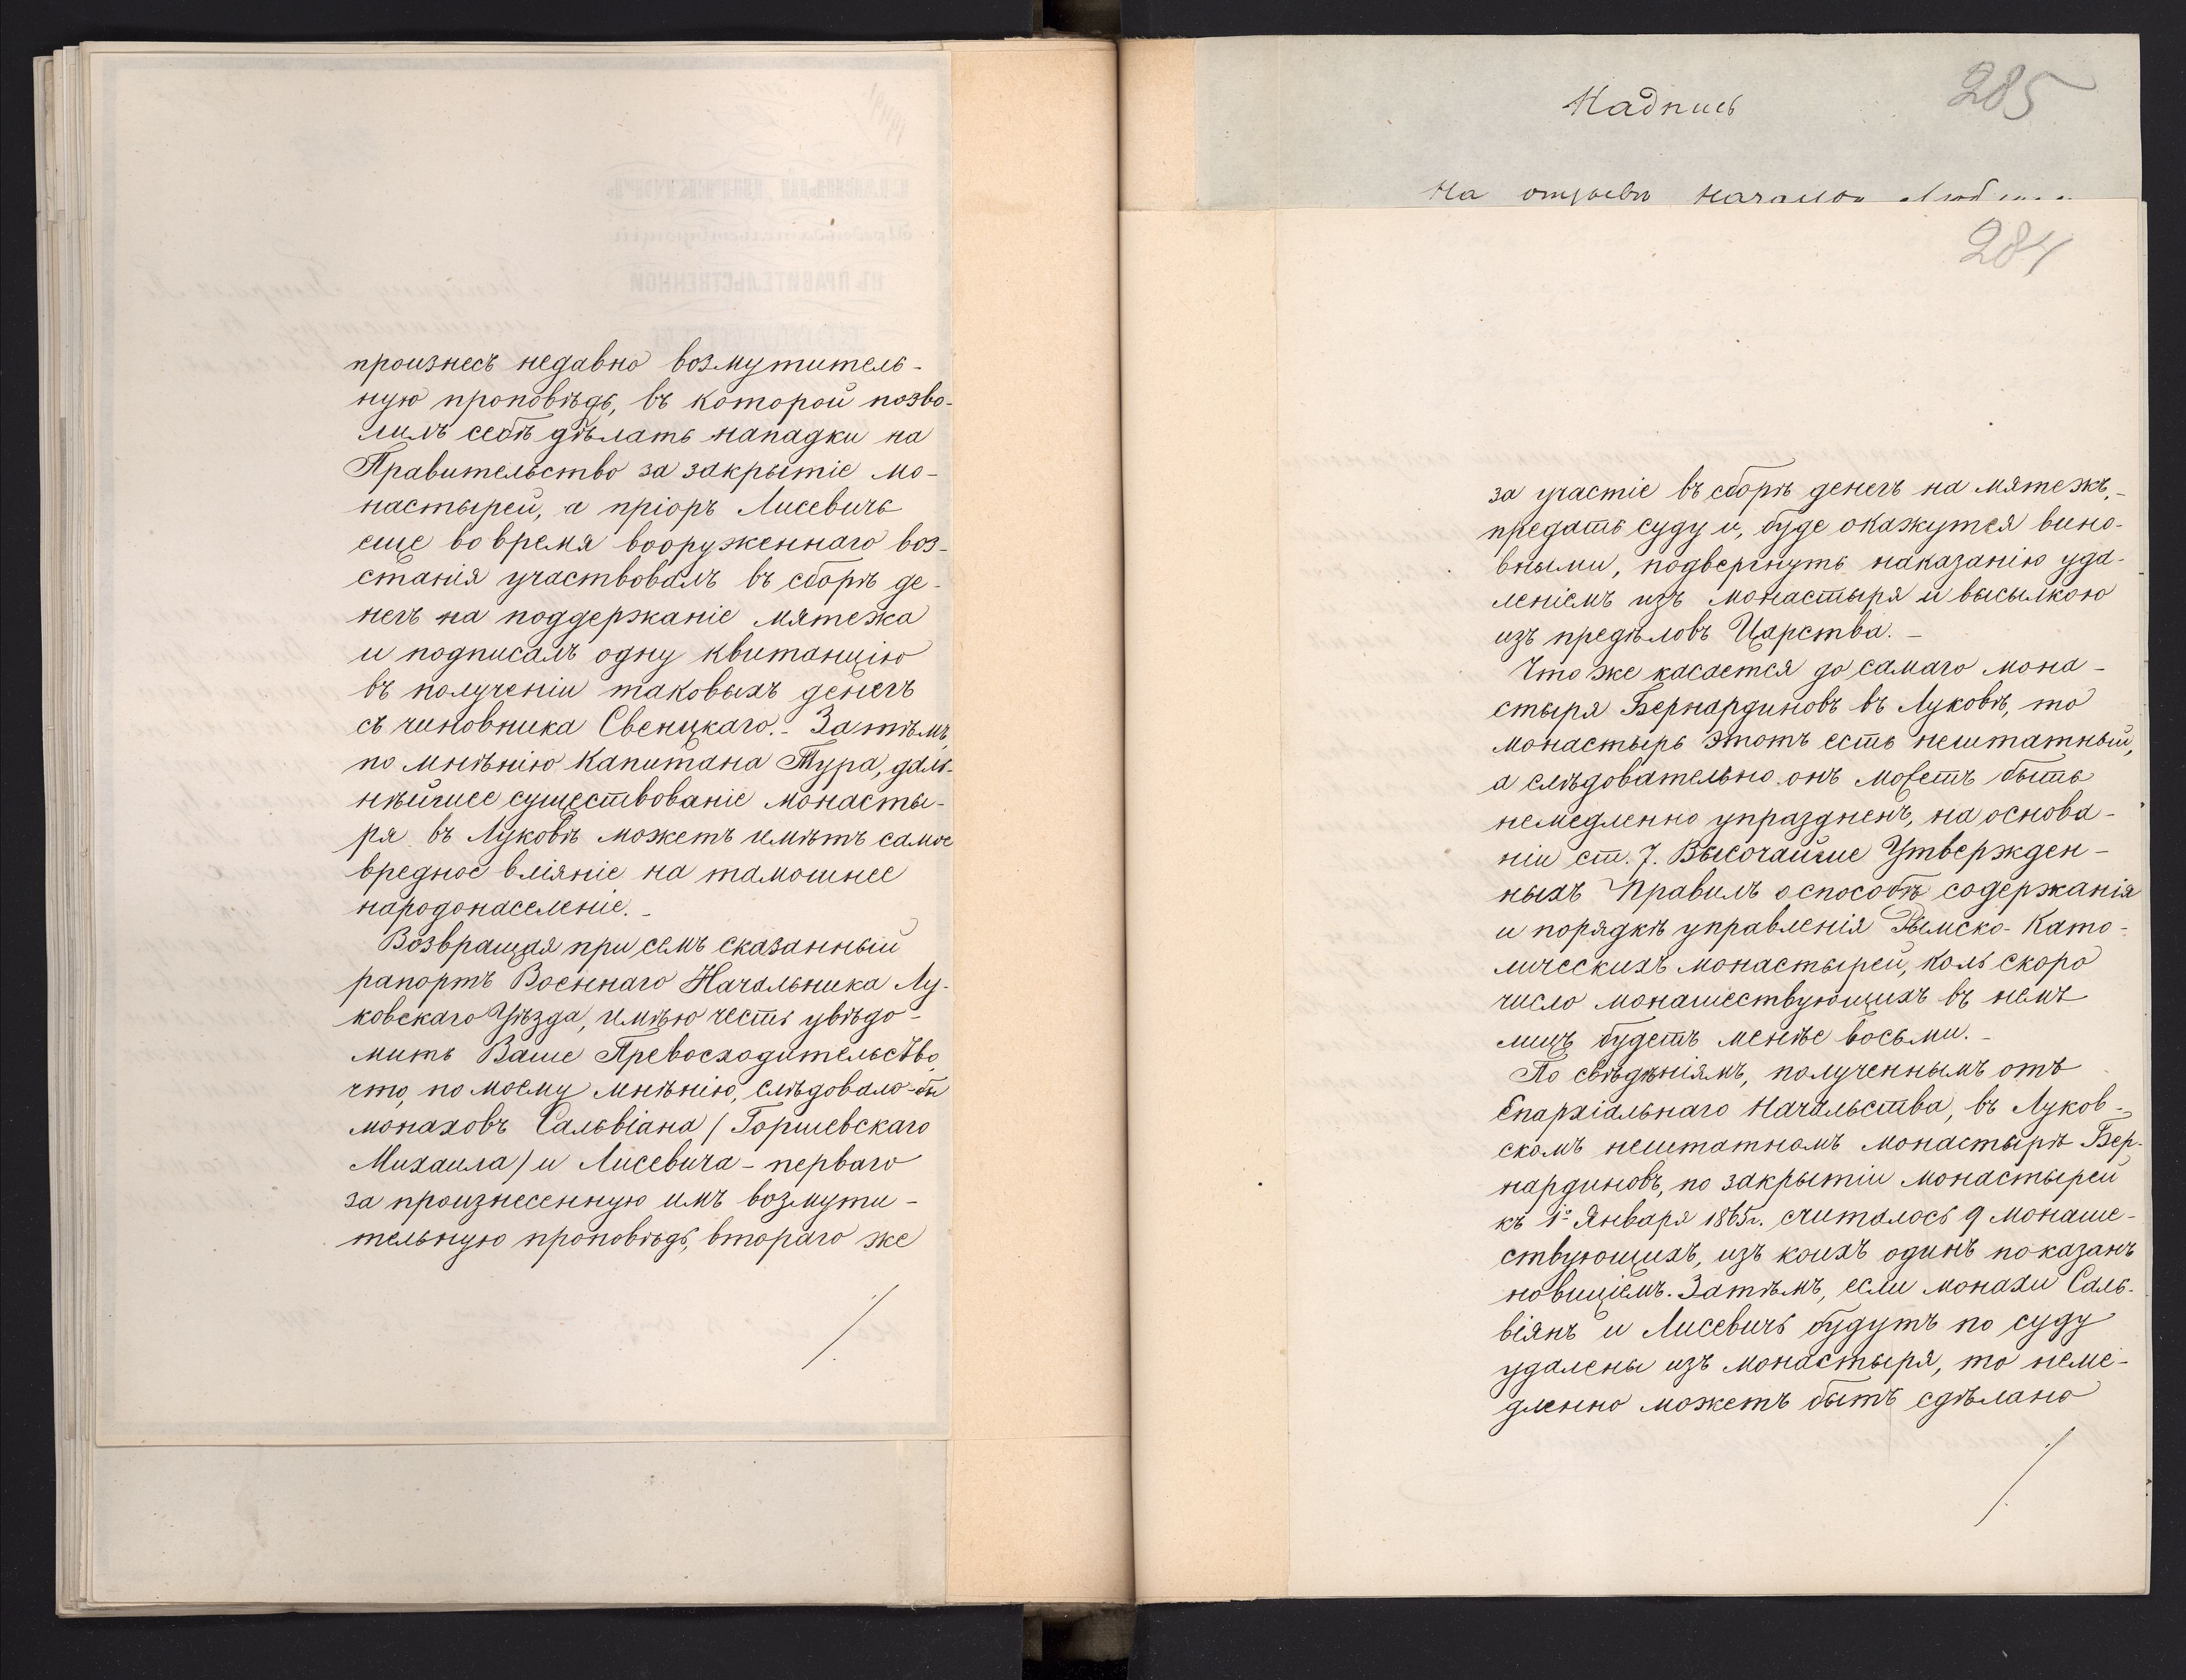 произнесъ недавно возмутитель-
ную проповѣдь, въ которой позво-
лилъ себѣ дѣлать нападки на
Правительство за закрытіе мо-
настырей, а пріоръ Лисевичъ
еще во время вооруженнаго воз-
станія участвовалъ въ сборѣ де-
негъ на поддержаніе мятежа
и подписалъ одну квитанцію
въ полученіи таковыхъ денегъ
съ чиновника Свенцкаго.- Затѣмъ,
по мнѣнію Капитана Тура, даль-
нѣйшее существованіе монасты-
ря въ Луковѣ можетъ имѣть самое
вредное вліяніе на тамошнее
народонаселеніе.-
Возвращая при семъ сказанный
рапортъ Военнаго Начальника Лу-
ковскаго Уѣзда, имѣю честь увѣдо-
мить Ваше Превосходительство,
что, по моему мнѣнію, слѣдовало-бы
монаховъ Сальвіана / Горшевскаго
Михаила / и Лисевича - перваго
за произнесенную имъ возмути-
тельную проповѣдь, втораго же
./.
Надпись
285
На отзывѣ
284
за участіе въ сборѣ денегъ на мятежъ,-
предать суду и, буде окажутся вино-
вными, подвергнуть наказанію уда-
леніемъ изъ монастыря и высылкою
изъ предѣловъ Царства.-
Что же касается до самаго мона-
стыря Бернардиновъ въ Луковѣ, то
монастырь этотъ есть нештатный,
а слѣдовательно онъ можетъ быть
немедленно упраздненъ, на основа-
ніи ст. 7. Высочайше Утвержден-
ныхъ Правилъ о способѣ содержанія
и порядкѣ управленія Римско-Като-
лическихъ монастырей, коль скоро
число монашествующихъ въ немъ
лицъ будетъ менѣе восьми.-
По свѣдѣніямъ, полученнымъ отъ
Епархіальнаго Начальства, въ Луков-
скомъ нештатномъ монастырѣ Бер-
нардиновъ, по закрытіи монастырей
къ 1º Января 1865г. считалось 9 монаше-
ствующихъ, изъ коихъ одинъ показанъ
новиціемъ. Затѣмъ, если монахи Саль-
віянъ и Лисевичъ будутъ по суду
удалены изъ монастыря, то неме-
дленно можетъ быть сдѣлано
./.